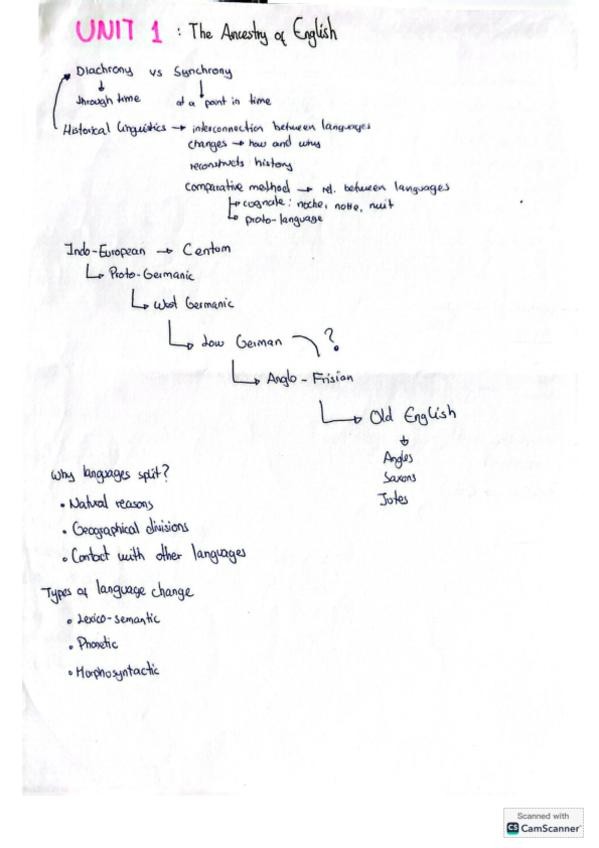 UNIT 1 : The Ancestry of English
Diachrony vs Synchrony
through time at a point in time
Historical linguistics → interconnection between languages
changes → how and why
reconstructs history
comparative method → rel. between languages
↳ cognate: noche, notte, nuit
↳ proto-language
Indo-European → Centum
↳ Proto-Germanic
↳ West Germanic
↳ Low German ?
↳ Anglo-Frisian
↳ Old English
↓
Angles
Saxons
Jutes
Why languages split?
• Natural reasons
• Geographical divisions
• Contact with other languages
Types of language change
• Lexico-semantic
• Phonetic
• Morphosyntactic
Scanned with
CS CamScanner